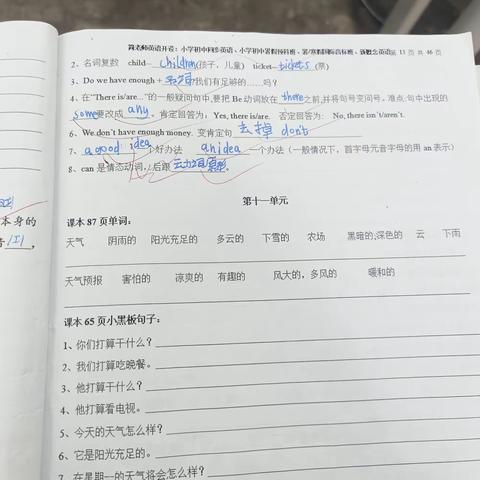 简老师英语开课：小学初中同步英语、小学初中暑假预科班、暑/寒假国际音标班、新概念英语 第 11 页 共 46 页
2、名词复数 child— children(孩子，儿童) ticket—tickets (票)
3、Do we have enough + 名词 我们有足够的……吗？
4、在"There is/are..."的一般疑问句中,要把 Be 动词放在 there 之前,并将句号变问号，难点:句中出现的
some要改成 any，肯定回答为：Yes, there is/are. 否定回答为： No, there isn't/aren't.
6、We don't have enough money. 变肯定句 去掉 don't
7、 a good idea 一个好办法 an idea 一个办法（一般情况下，首字母元音字母的用 an表示）
8、can 是情态动词，后跟 动词原形。
第十一单元
课本 87 页单词：
天气 阴雨的 阳光充足的 多云的 下雪的 农场 黑暗的;深色的 云 下雨
天气预报 害怕的 凉爽的 有趣的 风大的，多风的 暖和的
课本 65 页小黑板句子：
1、你们打算干什么？
2、我们打算吃晚餐。
3、他打算干什么？
4、他打算看电视。
5、今天的天气怎么样？
6、它是阳光充足的。
7、在星期一的天气将会怎么样？
本身的